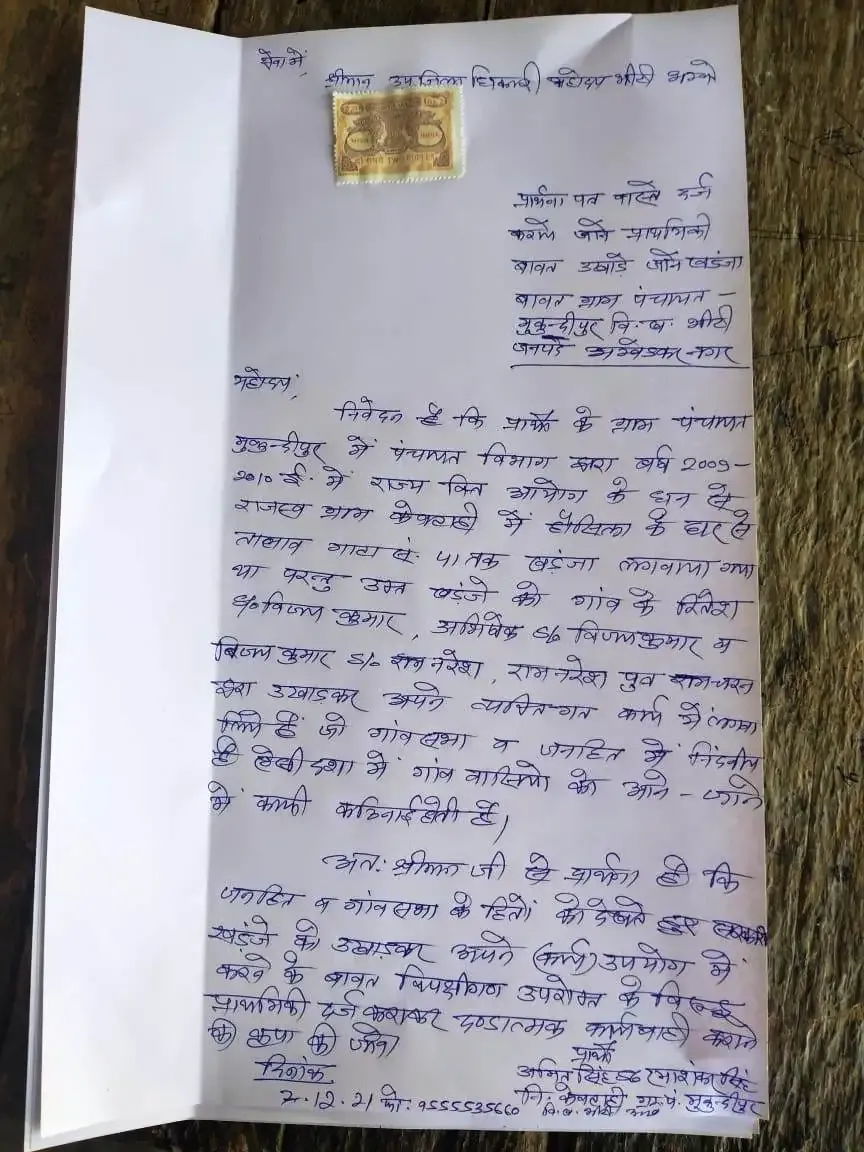 सेवा में,
श्रीमान उपजिलाधिकारी महोदय भीटी अ०न०
दो रुपये TWO RUPEES
प्रार्थना पत्र वास्ते दर्ज
कराये जाने प्राथमिकी
बावत उखाड़े जाने खडंजा
बावत ग्राम पंचायत -
मुकुन्दीपुर वि. ख. भीटी
जनपद अम्बेडकर-नगर
महोदय,
निवेदन है कि प्रार्थी के ग्राम पंचायत
मुकुन्दीपुर में पंचायत विभाग द्वारा वर्ष 2009-
2010 ई. में राज्य वित्त आयोग के धन से
राजस्व ग्राम केवटाही में हौसिला के घर से
तालाब गाटा सं. 41 तक खड़ंजा लगवाया गया
था परन्तु उक्त खड़ंजे को गांव के रितेश
S/o विजय कुमार, अभिषेक S/o विजय कुमार व
विजय कुमार S/o राम नरेश, राम नरेश पुत्र रामचरन
द्वारा उखाडकर अपने व्यक्तिगत कार्य में लगवा
लिये हैं जो गांव सभा व जनहित में निंदनीय
है ऐसी दशा में गांव वासियो को आने - जाने
में काफी कठिनाई होती है।
अतः श्रीमान जी से प्रार्थना है कि
जनहित व गांव सभा के हितों को देखते हुए सरकारी
खड़ंजे को उखाड़कर अपने (कार्य) उपयोग में
करने के बावत विपक्षीगण उपरोक्त के विरूद्ध
प्राथमिकी दर्ज कराकर दण्डात्मक कार्यवाही कराने
की कृपा की जाय।
प्रार्थी
दिनांक अमित सिंह S/o रमाशंकर सिंह
7.12.21 मो: 9555535660 नि. केवटाही ग्रा. पं. मुकुन्दीपुर
वि. ख. भीटी